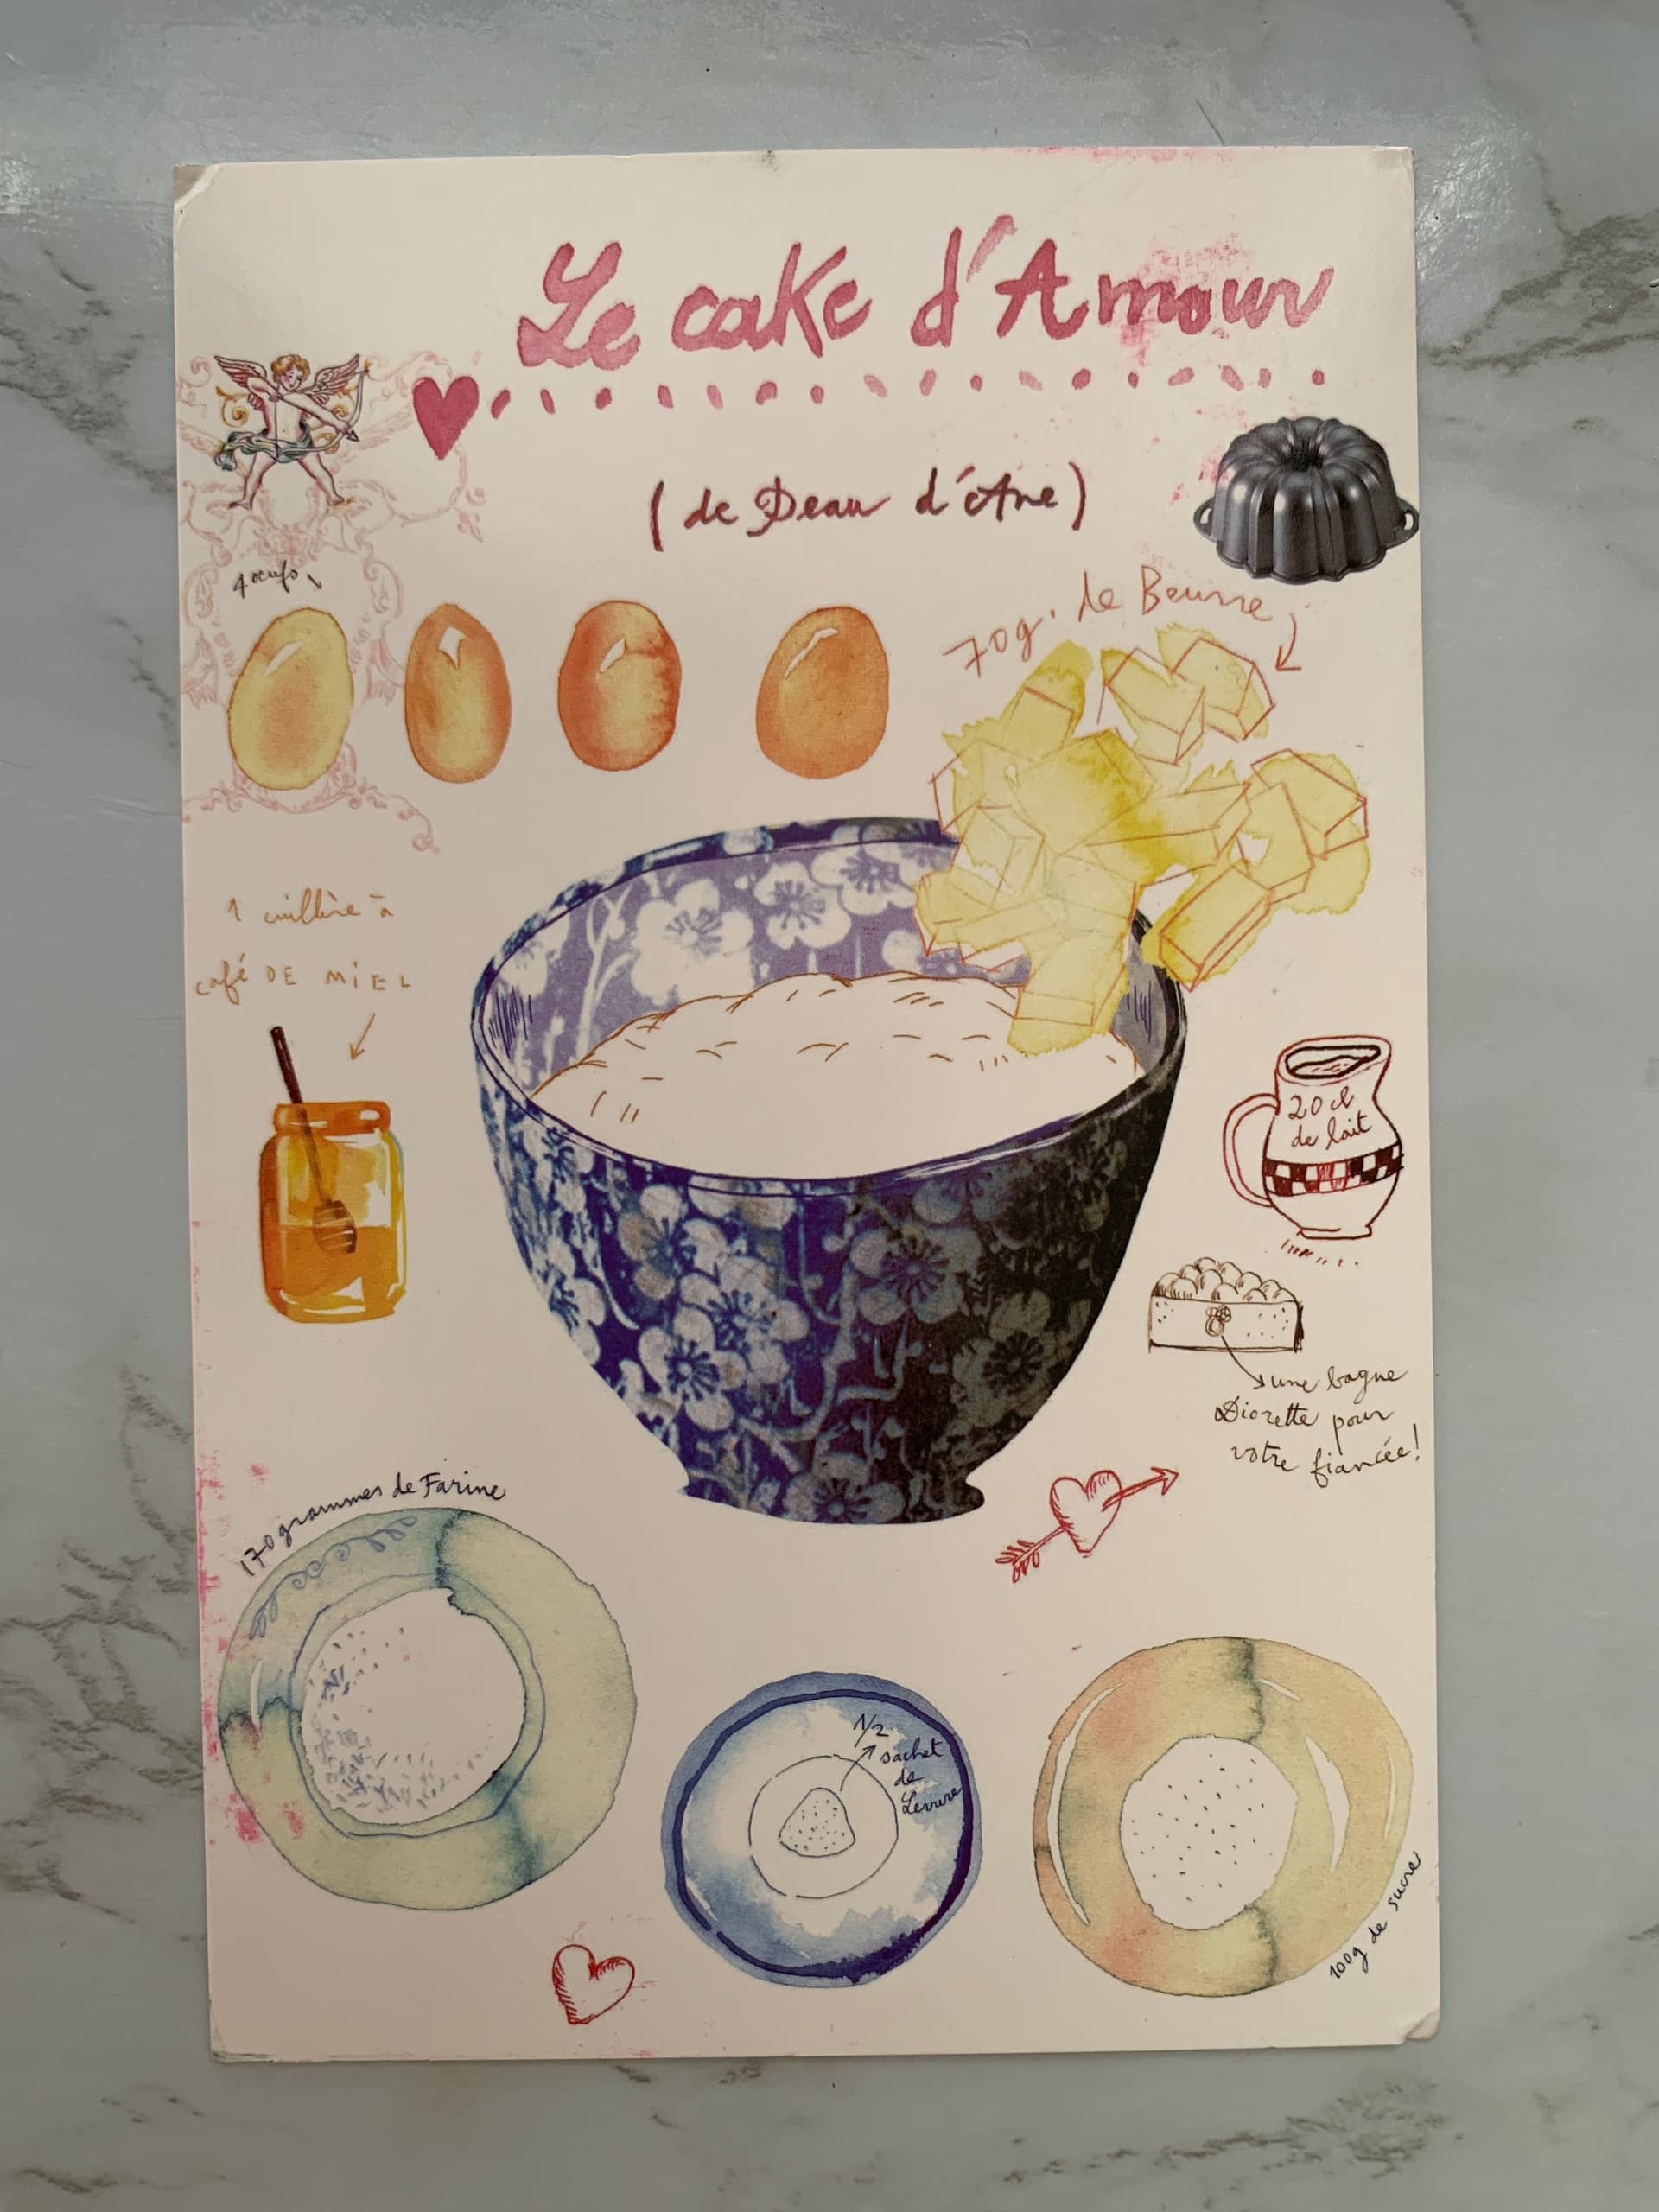 Le cake d'Amour
( de Peau d'Ane)
4 oeufs
70g. de Beurre
1 cuillère à
café DE MIEL
20 cl
de lait
une bague
Diorette pour
votre fiancée!
170 grammes de Farine
1/2
sachet
de
Levure
100g de sucre